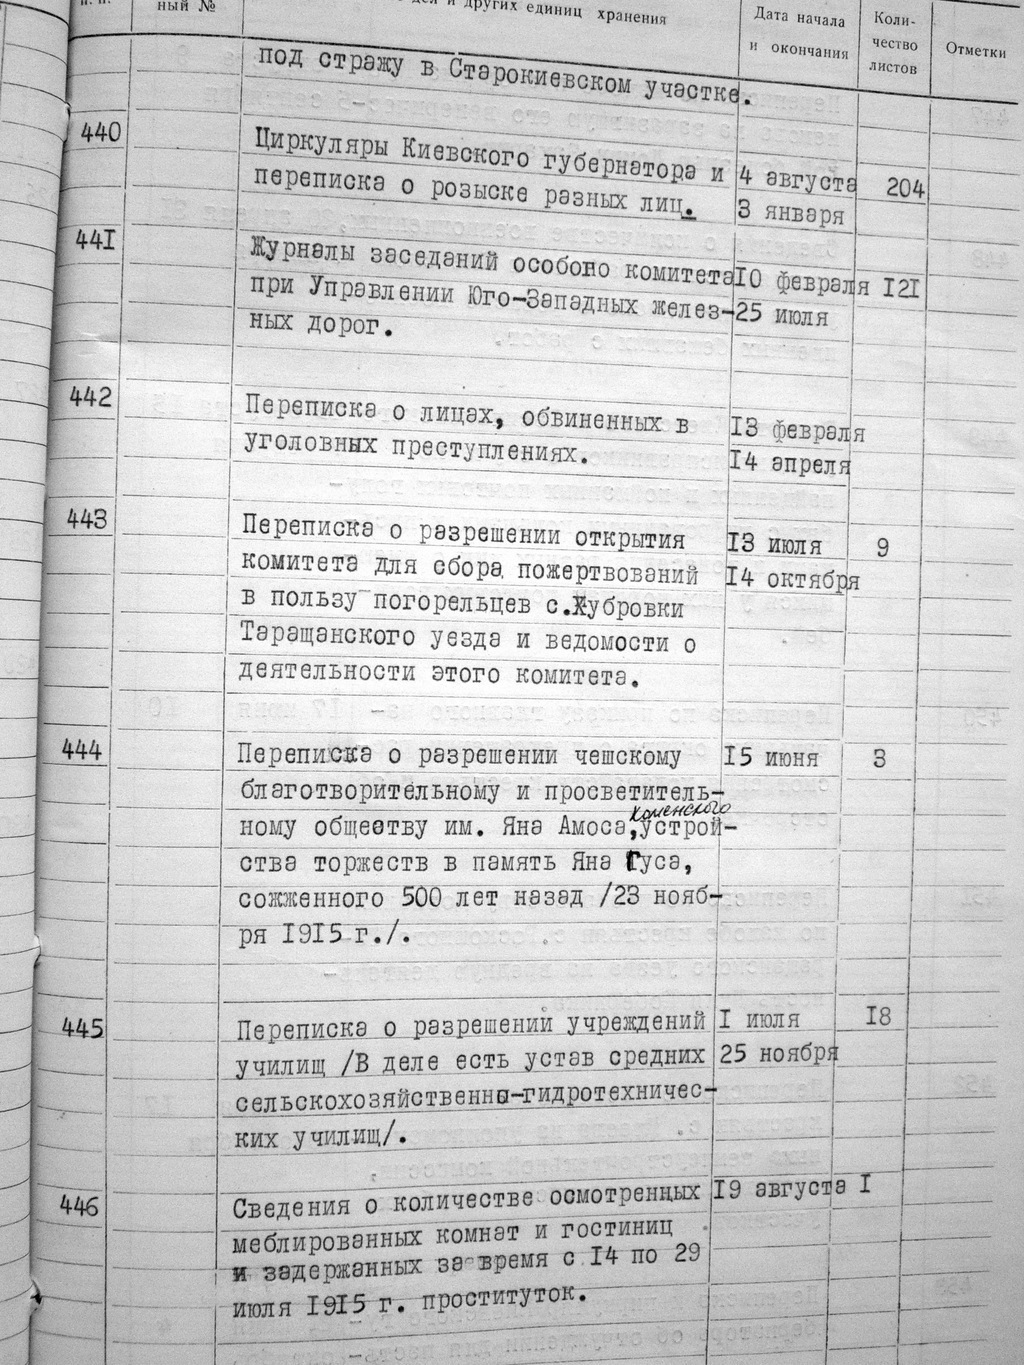 ный №
дел и других единиц хранения
Дата начала
и окончания
Коли-
чество
листов
Отметки
под стражу в Старокиевском участке.
440
Циркуляры Киевского губернатора и 4 августа 204
переписка о розыске разных лиц. 3 января
441
Журналы заседаний особого комитета 10 февраля 121
при Управлении Юго-Западных желез- 25 июля
ных дорог.
442
Переписка о лицах, обвиненных в 13 февраля
уголовных преступлениях. 14 апреля
443
Переписка о разрешении открытия 13 июля 9
комитета для сбора пожертвований 14 октября
в пользу погорельцев с.Жубровки
Таращанского уезда и ведомости о
деятельности этого комитета.
444 Переписка о разрешении чешскому 15 июня 3
благотворительному и просветитель-
Коменского
ному обществу им. Яна Амоса, устрой-
ства торжеств в память Яна Гуса,
сожженного 500 лет назад /23 нояб-
ря 1915 г./.
445 Переписка о разрешений учреждений 1 июля 18
училищ /В деле есть устав средних 25 ноября
сельскохозяйственно-гидротехничес-
ких училищ/.
446 Сведения о количестве осмотренных 19 августа 1
меблированных комнат и гостиниц
и задержанных за время с 14 по 29
июля 1915 г. проституток.